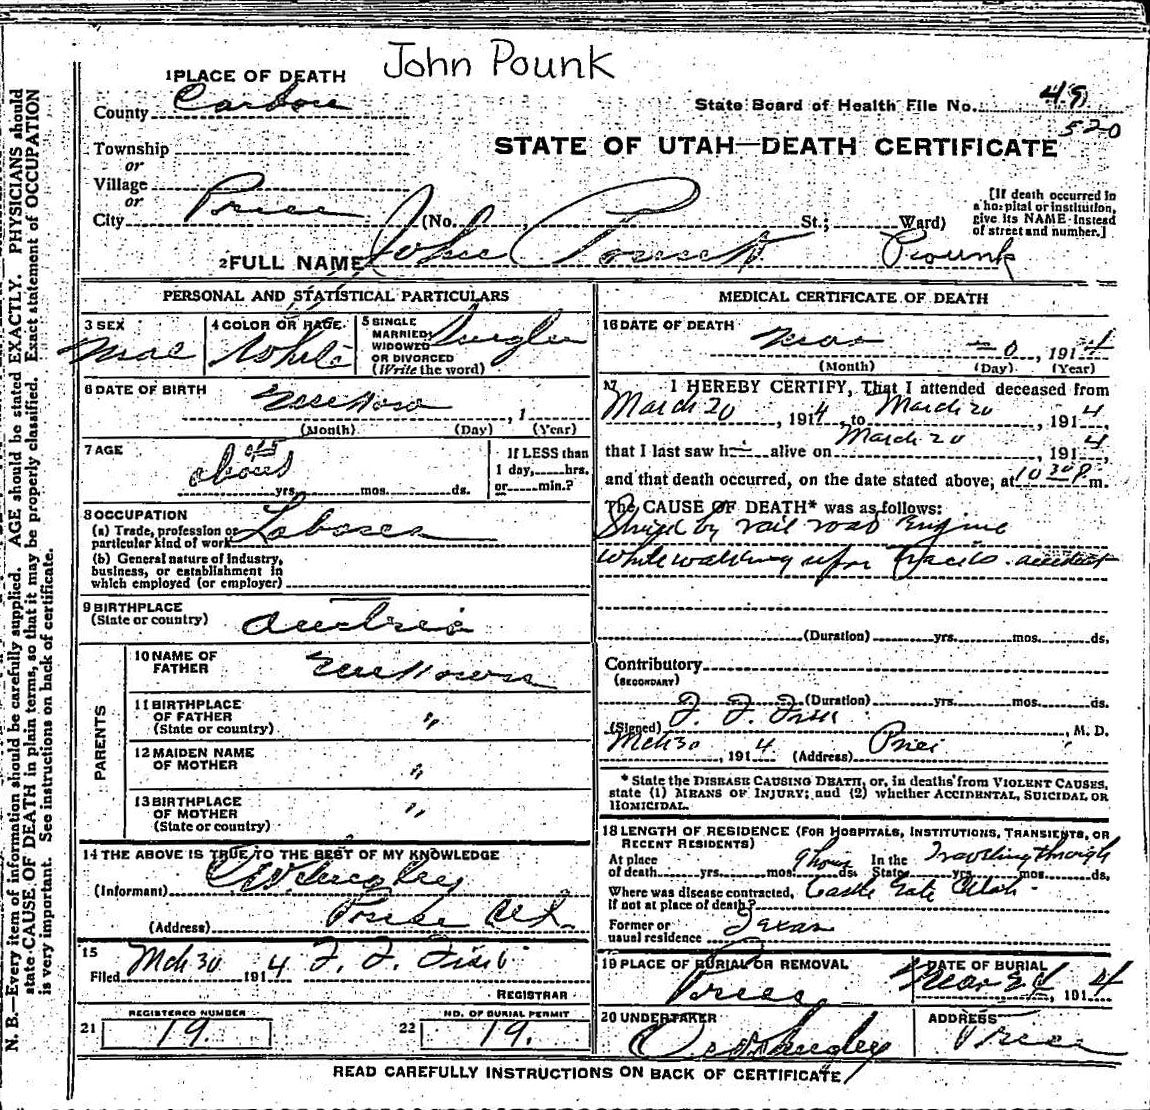 John Pounk
1 PLACE OF DEATH
County Carbon
State Board of Health File No. 49
520
Township
or
Village
or
City Price
STATE OF UTAH—DEATH CERTIFICATE
(No. St.; Ward)
[If death occurred in
a hospital or institution,
give its NAME instead
of street and number.]
2 FULL NAME John Pounk
PERSONAL AND STATISTICAL PARTICULARS
3 SEX
Mal
4 COLOR OR RACE
White
5 SINGLE
MARRIED
WIDOWED
OR DIVORCED
(Write the word)
Single
6 DATE OF BIRTH
, 1
(Month) (Day) (Year)
7 AGE
about
yrs. mos. ds.
If LESS than
1 day, hrs.
or min.?
8 OCCUPATION
(a) Trade, profession or
particular kind of work Laborer
(b) General nature of industry,
business, or establishment in
which employed (or employer)
9 BIRTHPLACE
(State or country) Austria
PARENTS
10 NAME OF
FATHER
11 BIRTHPLACE
OF FATHER
(State or country) "
12 MAIDEN NAME
OF MOTHER "
13 BIRTHPLACE
OF MOTHER
(State or country) "
14 THE ABOVE IS TRUE TO THE BEST OF MY KNOWLEDGE
(Informant)
(Address) Price
15
Filed Mch 30 1914
REGISTRAR
21 REGISTERED NUMBER
19.
22 NO. OF BURIAL PERMIT
19.
MEDICAL CERTIFICATE OF DEATH
16 DATE OF DEATH
Mar 20, 1914
(Month) (Day) (Year)
17 I HEREBY CERTIFY, That I attended deceased from
March 20, 1914, to March 20, 1914,
that I last saw h alive on March 20, 1914,
and that death occurred, on the date stated above, at 10 30 P. m.
The CAUSE OF DEATH* was as follows:
by rail road Engine
while walking upon accident
(Duration) yrs. mos. ds.
Contributory
(SECONDARY)
(Duration) yrs. mos. ds.
(Signed) , M. D.
Mch 30, 1914 (Address) Price
* State the DISEASE CAUSING DEATH, or, in deaths from VIOLENT CAUSES,
state (1) MEANS OF INJURY; and (2) whether ACCIDENTAL, SUICIDAL, OR
HOMICIDAL.
18 LENGTH OF RESIDENCE (FOR HOSPITALS, INSTITUTIONS, TRANSIENTS, OR
RECENT RESIDENTS)
At place
of death yrs. mos. 9 hours ds. In the
State Traveling through yrs. mos. ds.
Where was disease contracted,
if not at place of death? Castle Gate Utah.
Former or
usual residence Texas
19 PLACE OF BURIAL OR REMOVAL
Price
DATE OF BURIAL
Mar , 1914
20 UNDERTAKER
ADDRESS
Price
READ CAREFULLY INSTRUCTIONS ON BACK OF CERTIFICATE
N. B.—Every item of information should be carefully supplied. AGE should be stated EXACTLY. PHYSICIANS should
state CAUSE OF DEATH in plain terms, so that it may be properly classified. Exact statement of OCCUPATION
is very important. See instructions on back of certificate.